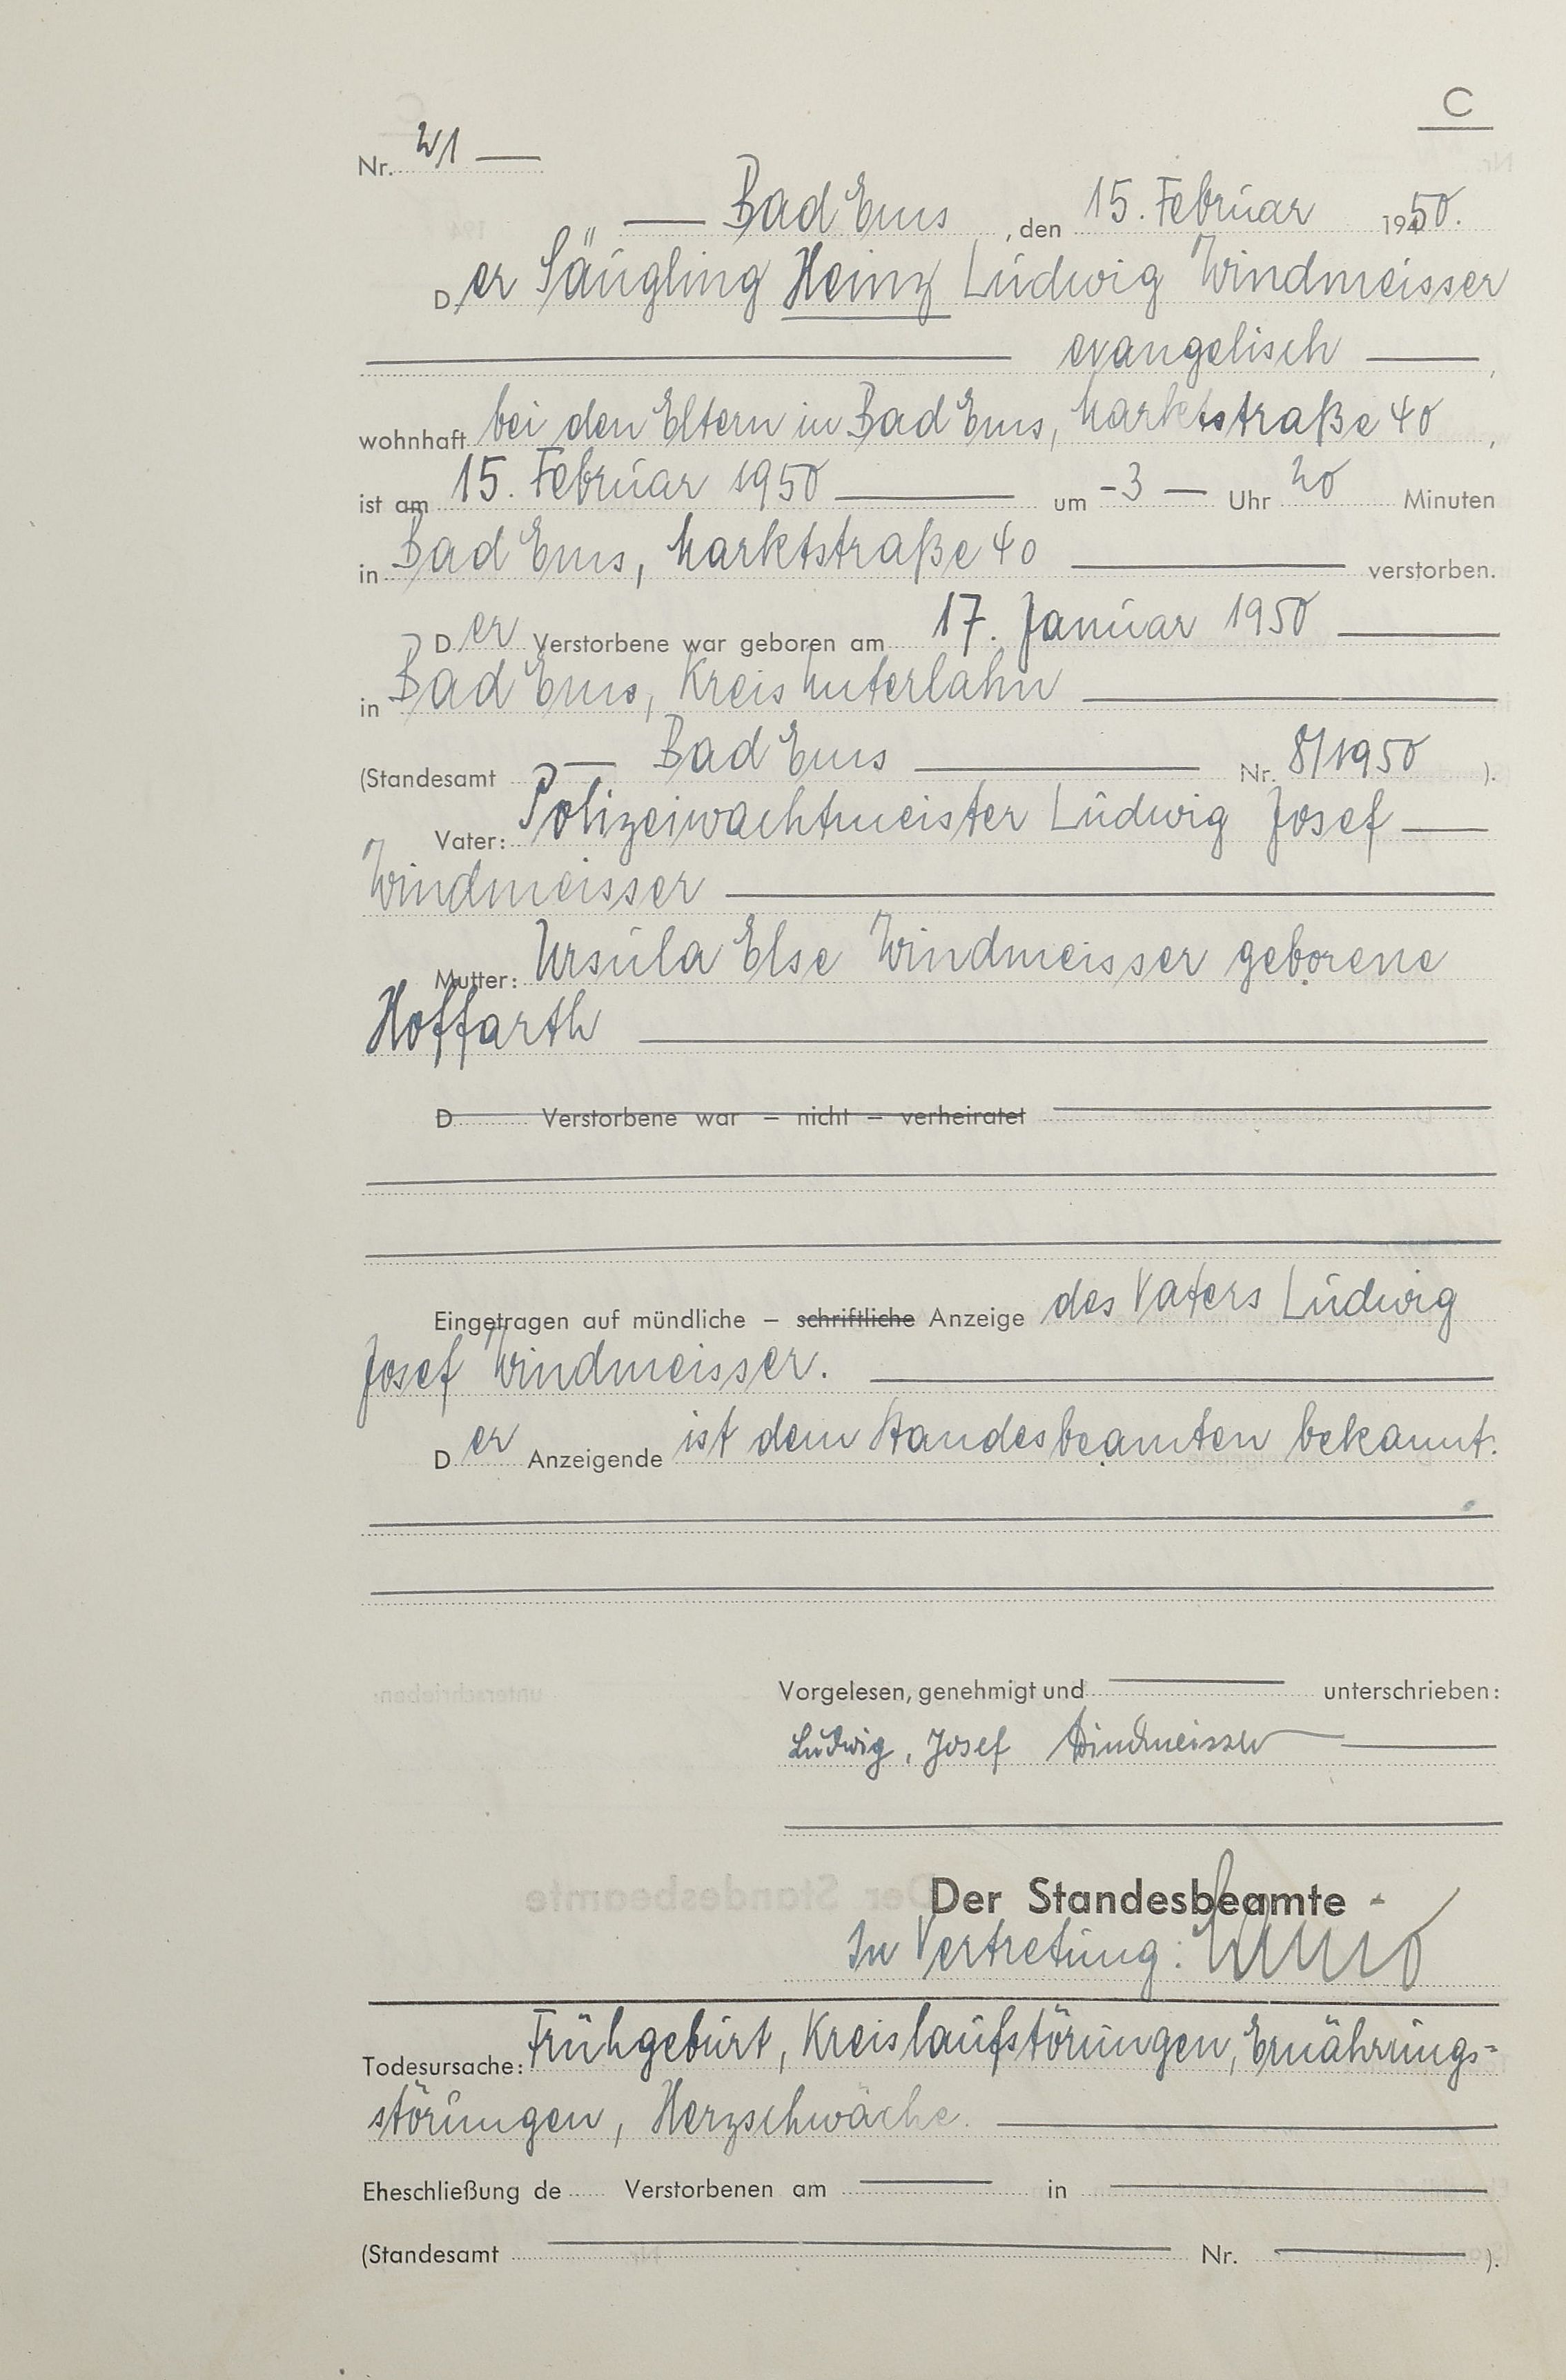 C
Nr. 21 —
— Bad Ems, den 15. Februar 1950.
Der Säugling Heinz Ludwig Windmeisser
evangelisch —,
wohnhaft bei den Eltern in Bad Ems, Marktstraße 40,
ist am 15. Februar 1950 — um -3 — Uhr 20 Minuten
in Bad Ems, Marktstraße 40 — verstorben.
Der Verstorbene war geboren am 17. Januar 1950 —
in Bad Ems, Kreis Unterlahn —
(Standesamt — Bad Ems — Nr. 8/1950 ).
Vater: Polizeiwachtmeister Ludwig Josef —
Windmeisser —
Mutter: Ursula Else Windmeisser geborene
Hoffarth —
D Verstorbene war – nicht – verheiratet —
Eingetragen auf mündliche – schriftliche Anzeige des Vaters Ludwig
Josef Windmeisser. —
Der Anzeigende ist dem Standesbeamten bekannt.
Vorgelesen, genehmigt und — unterschrieben:
Ludwig, Josef Windmeisser —
Der Standesbeamte
In Vertretung:
Todesursache: Frühgeburt, Kreislaufstörungen, Ernährungs=
störungen, Herzschwäche. —
Eheschließung de Verstorbenen am — in —
(Standesamt — Nr. — ).